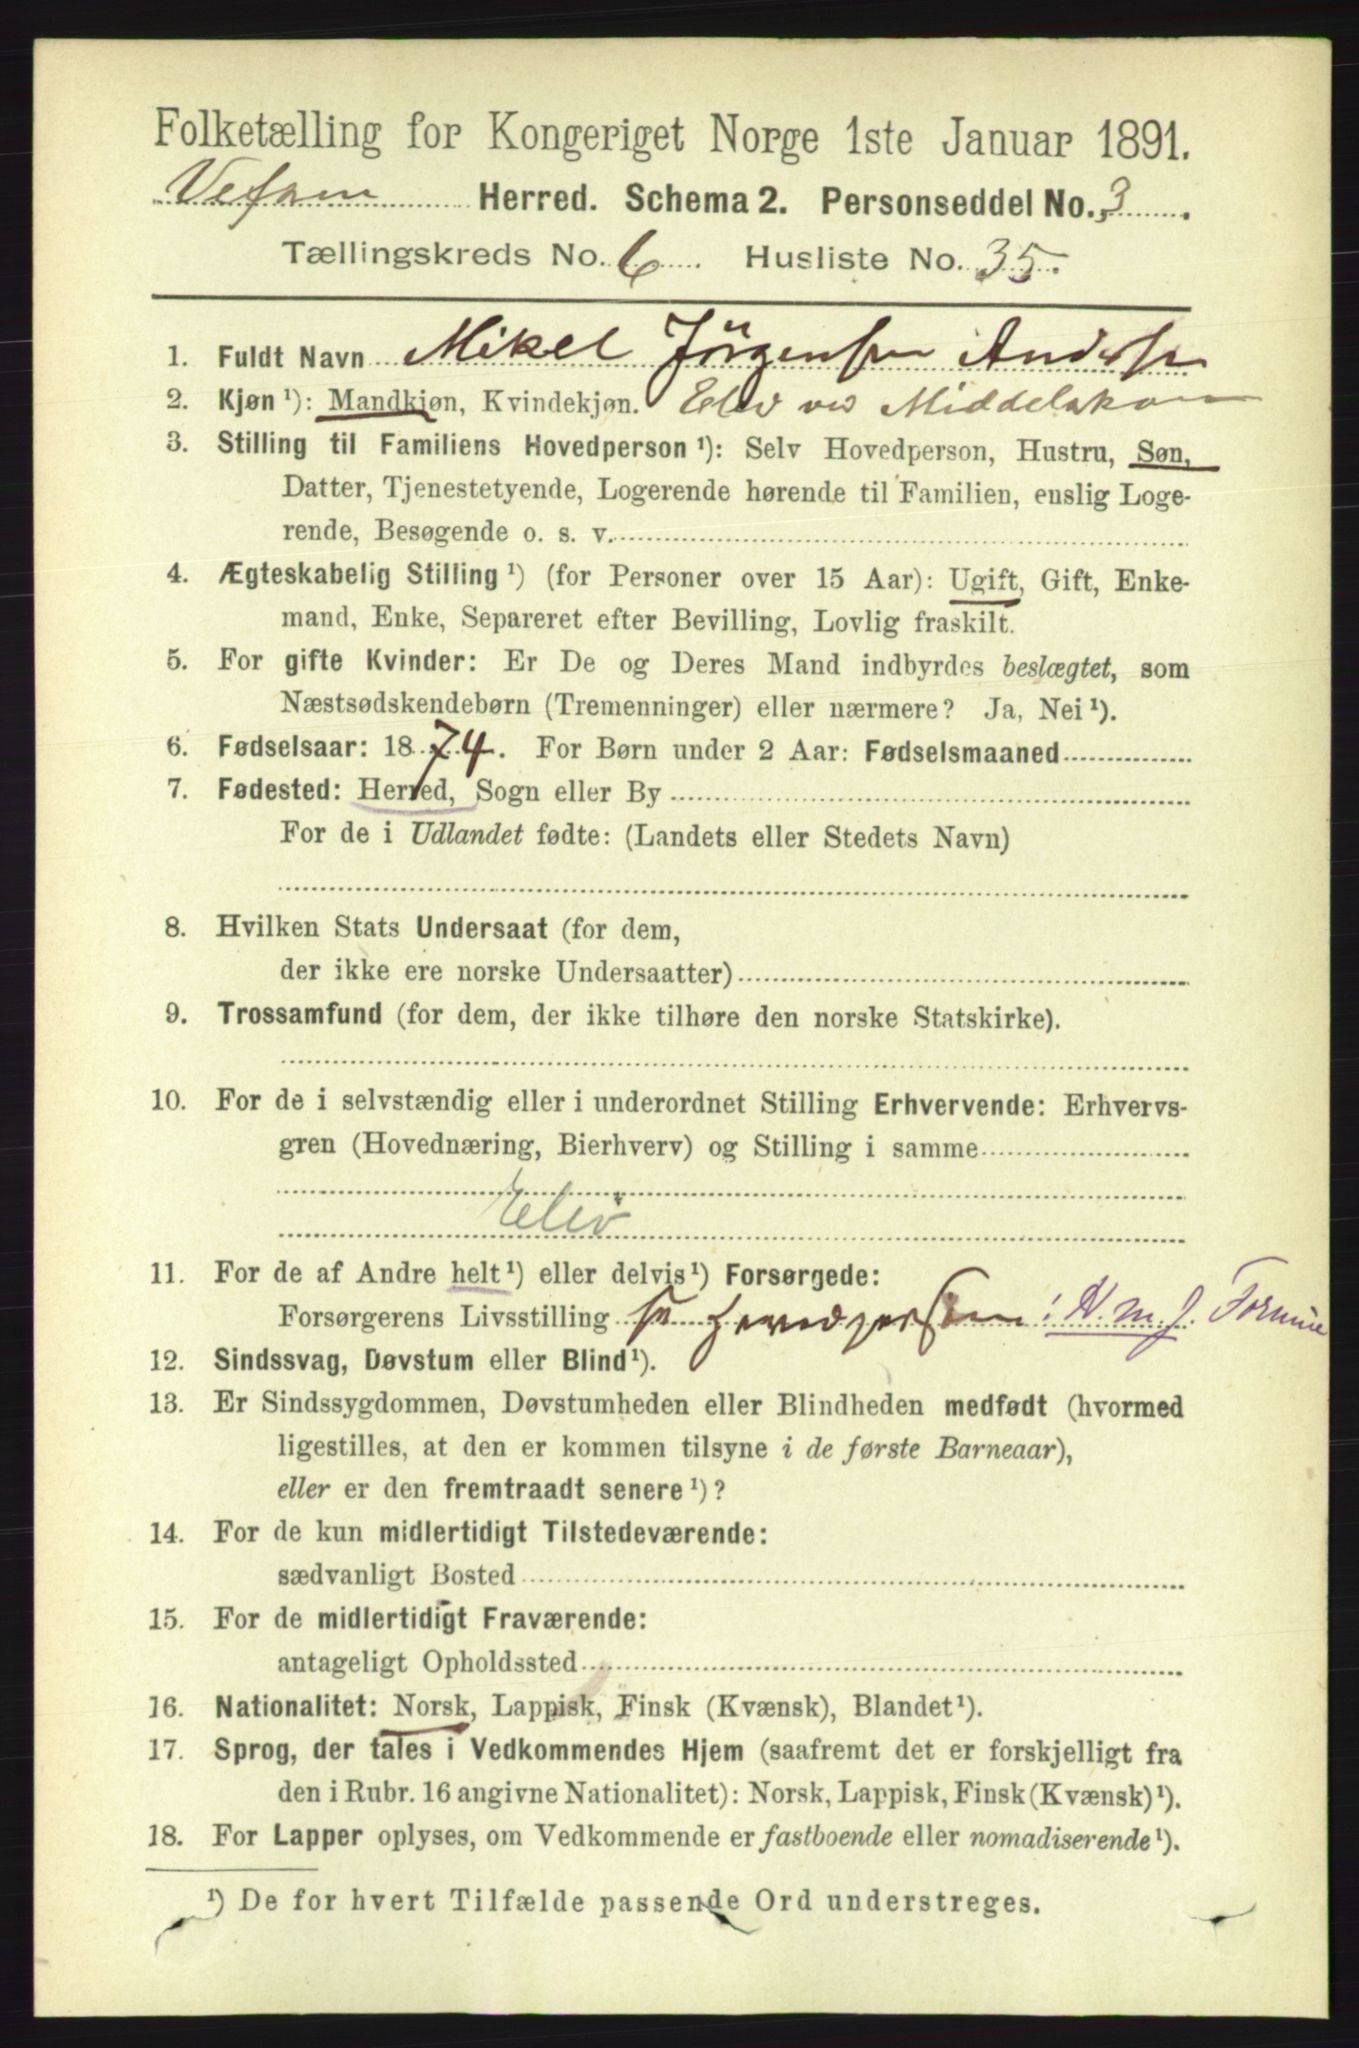 Folketælling for Kongeriget Norge 1ste Januar 1891.
Vefsen Herred. Schema 2. Personseddel No. 3.
Tællingskreds No. 6 Husliste No. 35.
1. Fuldt Navn Mikel Jörgensen Anders
2. Kjøn ¹): Mandkjøn, Kvindekjøn. Elev ved Middelskolen
3. Stilling til Familiens Hovedperson ¹): Selv Hovedperson, Hustru, Søn,
Datter, Tjenestetyende, Logerende hørende til Familien, enslig Loge-
rende, Besøgende o. s. v.
4. Ægteskabelig Stilling ¹) (for Personer over 15 Aar): Ugift, Gift, Enke-
mand, Enke, Separeret efter Bevilling, Lovlig fraskilt.
5. For gifte Kvinder: Er De og Deres Mand indbyrdes beslægtet, som
Næstsødskendebørn (Tremenninger) eller nærmere? Ja, Nei ¹).
6. Fødselsaar: 1874. For Børn under 2 Aar: Fødselsmaaned
7. Fødested: Herred, Sogn eller By
For de i Udlandet fødte: (Landets eller Stedets Navn)
8. Hvilken Stats Undersaat (for dem,
der ikke ere norske Undersaatter)
9. Trossamfund (for dem, der ikke tilhøre den norske Statskirke).
10. For de i selvstændig eller i underordnet Stilling Erhvervende: Erhvervs-
gren (Hovednæring, Bierhverv) og Stilling i samme
Elev
11. For de af Andre helt ¹) eller delvis ¹) Forsørgede:
Forsørgerens Livsstilling se Hovedpersonen: H. m. f. Formue
12. Sindssvag, Døvstum eller Blind ¹).
13. Er Sindssygdommen, Døvstumheden eller Blindheden medfødt (hvormed
ligestilles, at den er kommen tilsyne i de første Barneaar),
eller er den fremtraadt senere ¹)?
14. For de kun midlertidigt Tilstedeværende:
sædvanligt Bosted
15. For de midlertidigt Fraværende:
antageligt Opholdssted
16. Nationalitet: Norsk, Lappisk, Finsk (Kvænsk), Blandet ¹).
17. Sprog, der tales i Vedkommendes Hjem (saafremt det er forskjelligt fra
den i Rubr. 16 angivne Nationalitet): Norsk, Lappisk, Finsk (Kvænsk) ¹).
18. For Lapper oplyses, om Vedkommende er fastboende eller nomadiserende ¹).
¹) De for hvert Tilfælde passende Ord understreges.